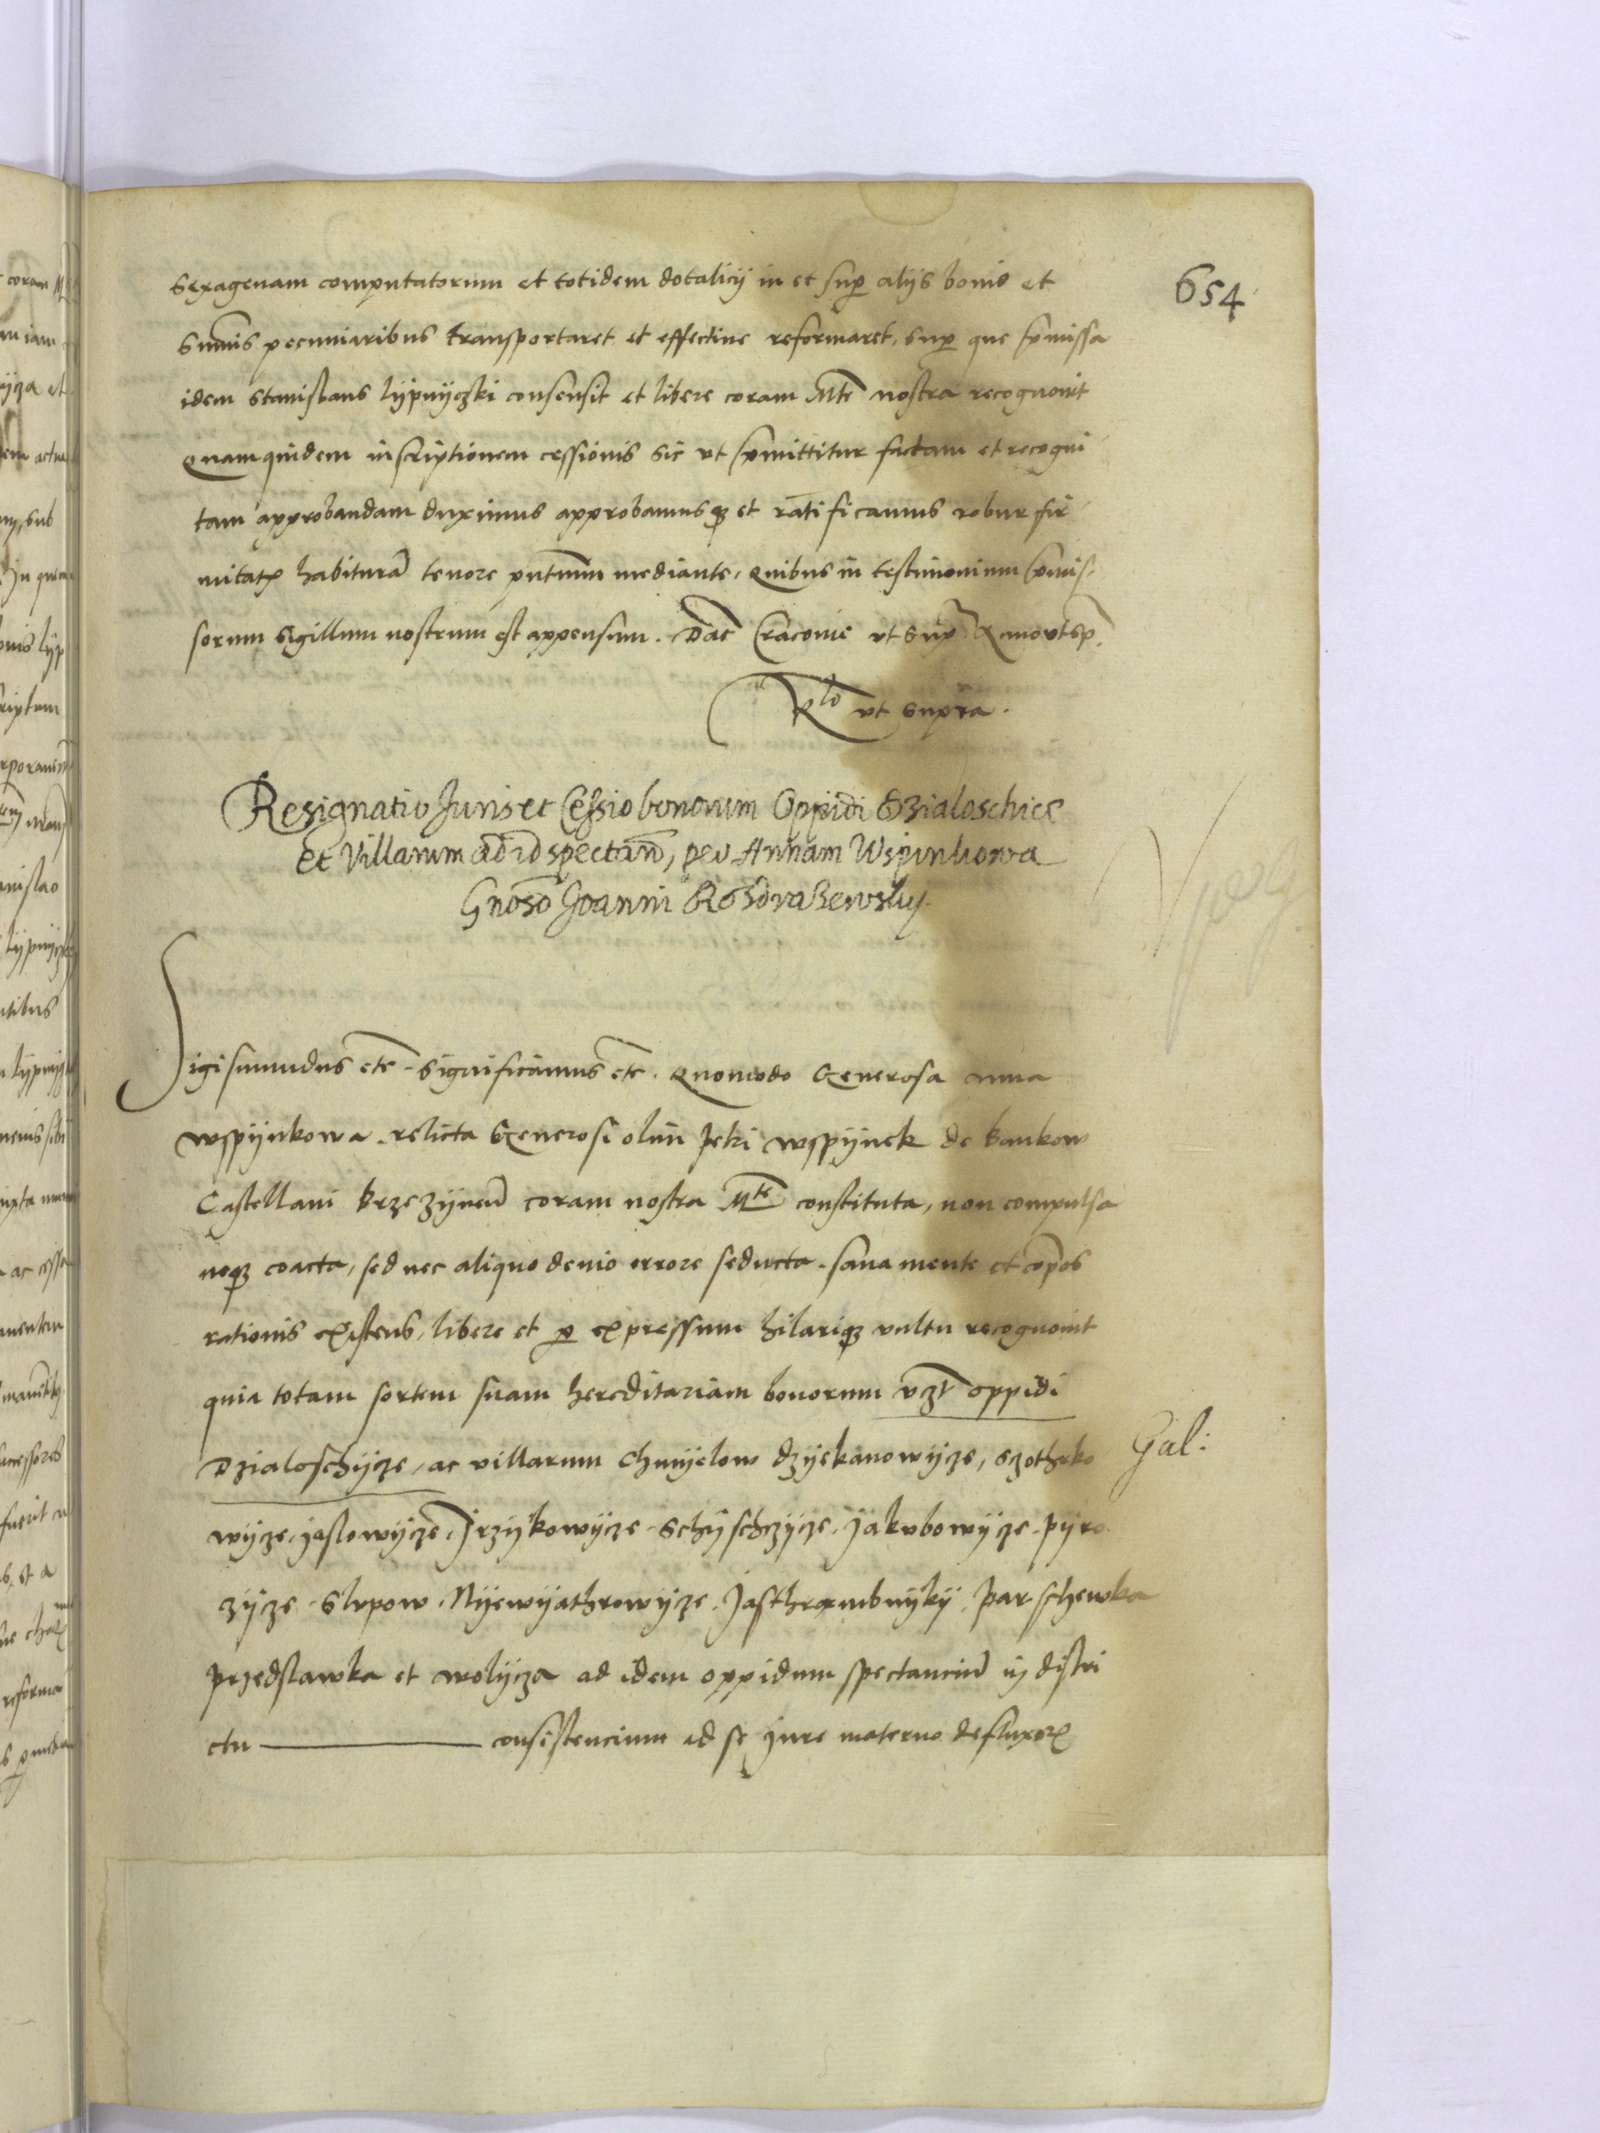 654
sexagenam computatorum et totidem dotalicij in et sup alijs bonis et
summis pecuniaribus transportaret et effectiue reformaret, sup que pmissa
idem Stanislaus lypnyczki consensit et libere coram Mte nostra recognouit
Quamquidem inscriptionem cessionis sic vt pmittitur factam et recogni
tam approbandam duximus approbamusq et ratificamus robur fir
mitatis habitura tenore pntium mediante, Quibus in testimonium pmis
sorum sigillum nostrum est appensum. Dat Cracouie vt supra
Rlo vt supra.
Resignatio Juris et Cessio bonorum Oppidi Dzialoschice
Et Villarum ad id spectan, per Annam Wspinkowa
Gnoso Joanni Rosdrazewsky.
Sigismundus etc. Significamus etc. Quomodo Generosa anna
wspijnkowa relicta Generosi olim petri wspijnek de bankow
Castellani brzezijnen coram nostra Mte constituta, non compulsa
neq coacta, sed nec aliquo deuio errore seducta sana mente et compos
rationis existens, libere et p expressum hilariq vultu recognouit
quia totam sortem suam hereditariam bonorum vzt oppidi
Dzialoschijcze, ac villarum Chmijelow dzijekanowijcze, szothrko
Gal:
wijcze, jaslowijcze, Jrzijkowijcze Schijschczijcze, Jakubowijcze pijro
zijcze Slupow Nijewijathrowijcze Jasthrambnijkij parschewka
przedslawka et wolijcza ad idem oppidum spectanciu in distri
ctu consistencium ad se jure materno defluxor